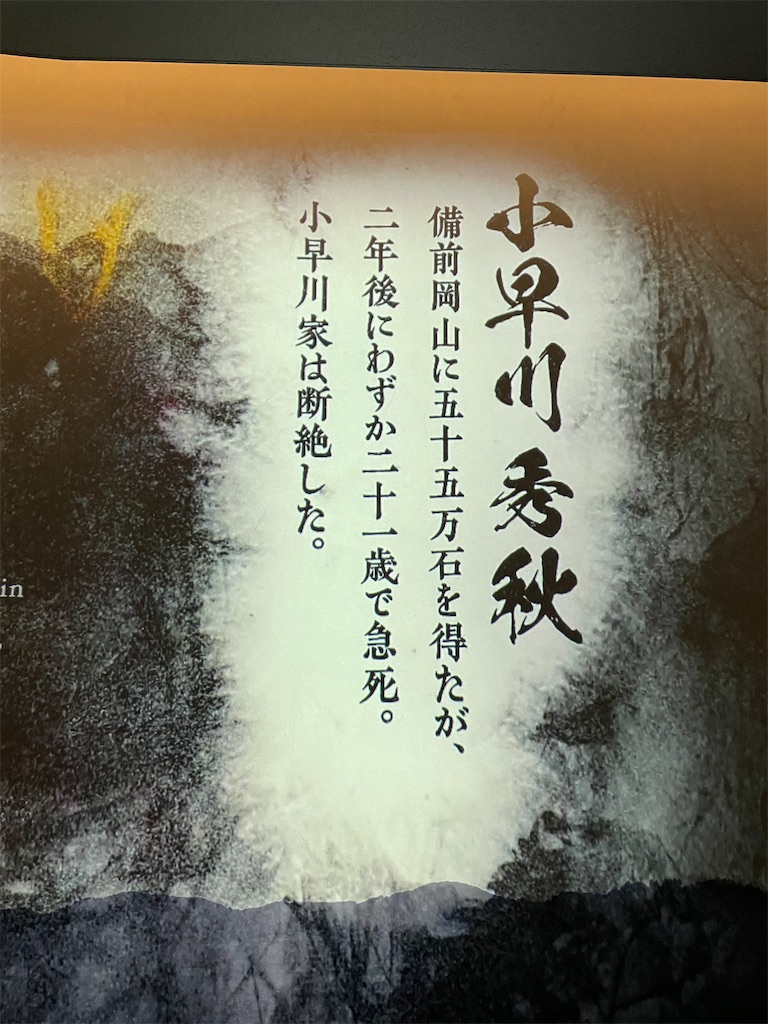 小早川秀秋
備前岡山に五十五万石を得たが、
二年後にわずか二十一歳で急死。
小早川家は断絶した。
in